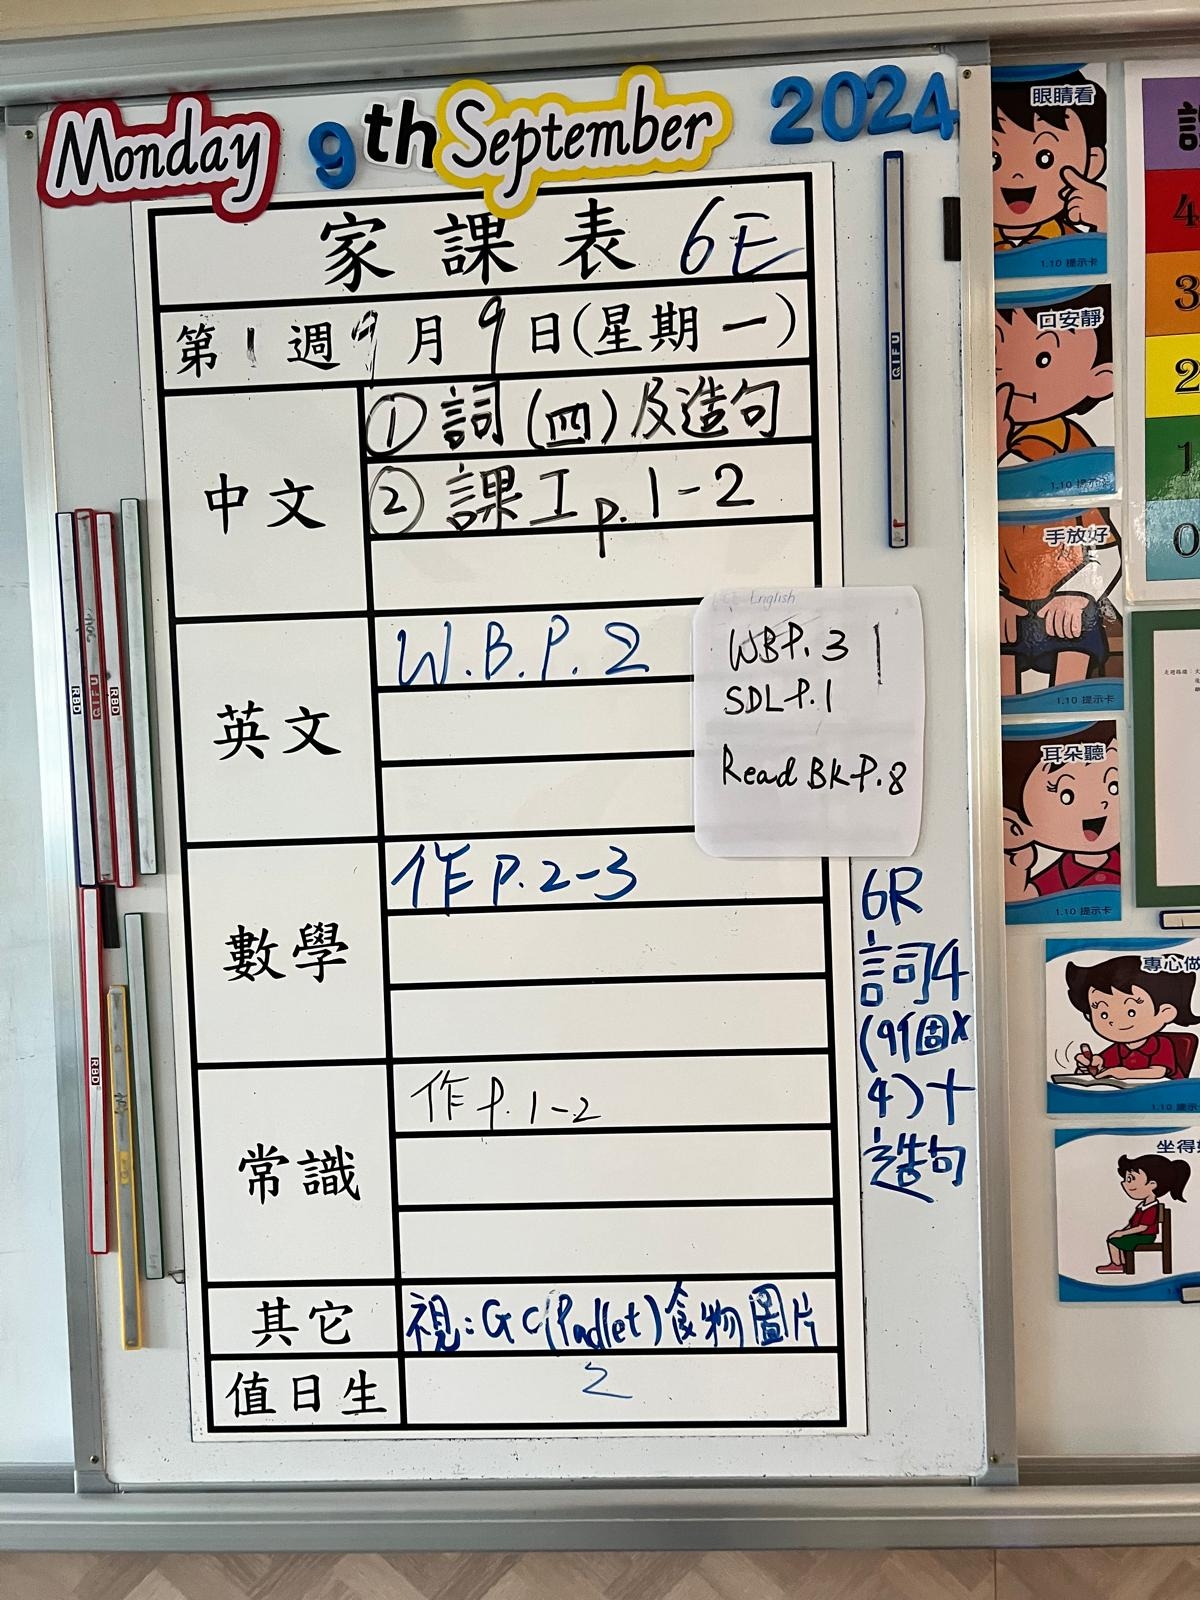 Monday 9th September 2024
家課表 6E
第1週9月9日(星期一)
中文
① 詞(四)及造句
② 課工p.1-2
英文
W.B.P.2
English
WBP.3
SDL P.1
Read BK P.8
數學
作P.2-3
常識
作P.1-2
其它
視:GC(Padlet)食物圖片
值日生
2
6R
詞4
(9個x
4)+
造句
GIFU
RBD
GIFU
RBD
RBD
眼睛看
1.10 提示卡
口安靜
1.10 提示卡
手放好
1.10 提示卡
耳朵聽
1.10 提示卡
專心做
1.10 提示卡
坐得
4
3
2
1
0